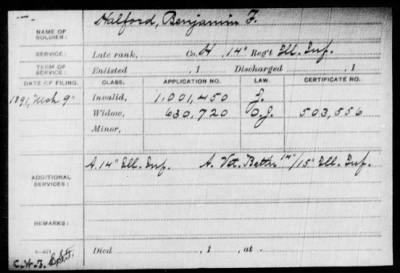 NAME OF SOLDIER: Halford, Benjamin F.
SERVICE: Late rank, Co. H, 14" Reg't Ill. Inf.
TERM OF SERVICE: Enlisted , 1 Discharged , 1
DATE OF FILING. CLASS. APPLICATION NO. LAW. CERTIFICATE NO.
1891, Mch 9" Invalid, 1,001,450
Widow, 630,720 O.J. 503,556
Minor,
ADDITIONAL SERVICES: A. 14" Ill. Inf. A. Vet. Battn 14"/15" Ill. Inf.
REMARKS:
Died , 1 , at